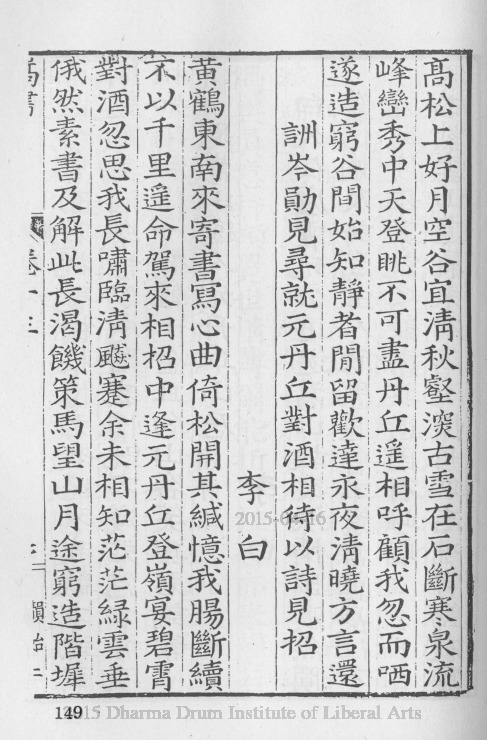 高松上好月空谷宜清秋壑深古雪在石斷寒泉流
峰巒秀中天登眺不可盡丹丘遥相呼顧我忽而哂
遂造窮谷間始知靜者閒留歡達永夜清曉方言還
詶岑勛見尋就元丹丘對酒相待以詩見招
李白
黄鶴東南來寄書寫心曲倚松開其緘憶我腸斷續
不以千里遥命駕來相招中逢元丹丘登嶺宴碧霄
對酒忽思我長嘯臨清飇蹇余未相知茫茫緑雲垂
俄然素書及解此長渴饑策馬望山月途窮造階墀
卷十三
149
2015-04-16
2015 Dharma Drum Institute of Liberal Arts